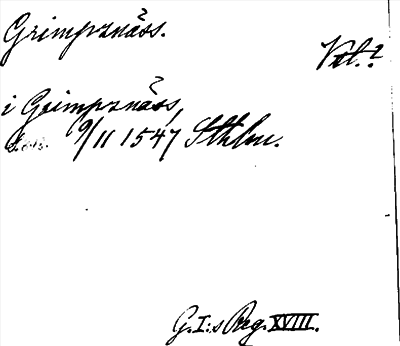 Grimpznäss.
Vxl.?
i Grimpznäss,
9/11 1547 Sthlm.
G.I:s Reg. XVIII.